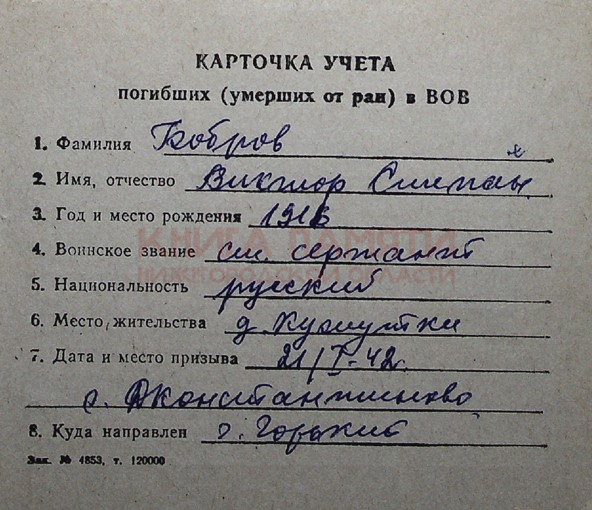 КАРТОЧКА УЧЕТА
погибших (умерших от ран) в ВОВ
1. Фамилия Бобров
2. Имя, отчество Виктор Степан
3. Год и место рождения 1916
КНИГА ПАМЯТИ
4. Воинское звание ст. сержант
НИЖЕГОРОДСКОЙ ОБЛАСТИ
5. Национальность русский
6. Место жительства д.
7. Дата и место призыва 21/I-42
с. Дконстантиново
8. Куда направлен г. Горький
Зак. № 4853, т. 120000